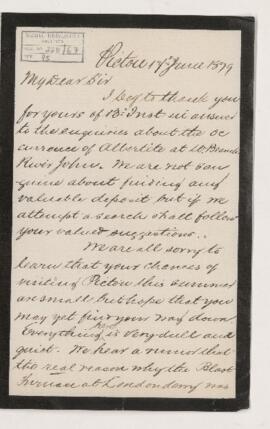 Pictou 17 June 1879
My Dear Sir
I beg to thank you
for yours of 13 Inst in answer
to the enquiries about the oc
currence of Albertite at W. Branch
River John. We are not san
guine about finding any
valuable deposit but if we
attempt a search shall follow
your valued suggestions..
We are all sorry to
learn that your chances of
visiting Pictou this summer
are small but hope that you
may yet find your way down
Everything here is very dull and
quiet. We hear a rumor that
the real reason why the Blast
Furnace at Londonderry was